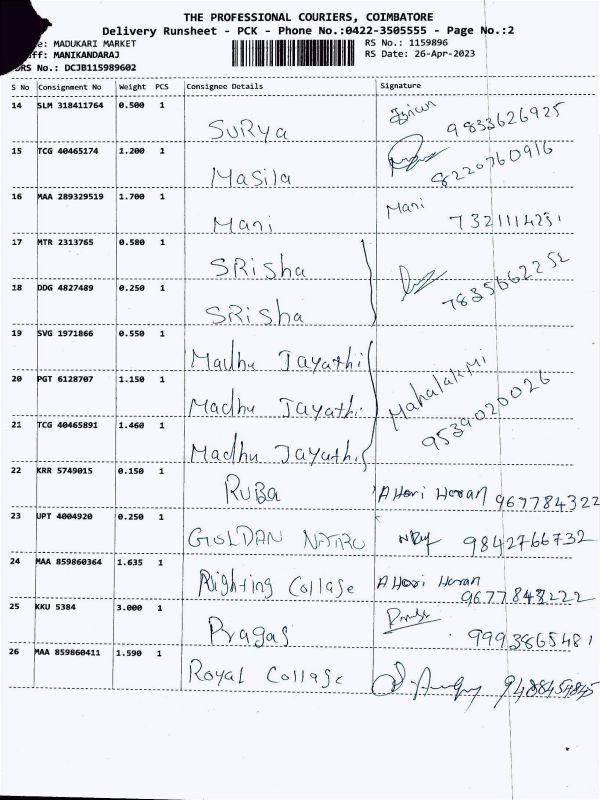 THE PROFESSIONAL COURIERS, COIMBATORE
Delivery Runsheet - PCK - Phone No.:0422-3505555 - Page No.:2
e: MADUKARI MARKET
RS No.: 1159896
ff: MANIKANDARAJ
RS Date: 26-Apr-2023
DRS No.: DCJB115989602
S No Consignment No Weight PCS Consignee Details Signature
14 SLM 318411764 0.500 1 SURYA 9833626925
15 TCG 40465174 1.200 1 Masila 8220760916
16 MAA 289329519 1.700 1 Mani Mani 7321114231
17 MTR 2313765 0.580 1 SRisha
18 DDG 4827489 0.250 1 SRisha 7835662252
19 SVG 1971866 0.550 1 Madhu Jayathi
20 PGT 6128707 1.150 1 Madhu Jayathi Mahalakmi
21 TCG 40465891 1.460 1 Madhu Jayathi 9539020026
22 KRR 5749015 0.150 1 RUBa A Hari Haran 967784322
23 UPT 4004920 0.250 1 GOLDAN 9842766732
24 MAA 859860364 1.635 1 Righting Collage A Hari Haran
9677848222
25 KKU 5384 3.000 1 Pragas 9993865481
26 MAA 859860411 1.590 1 Royal Collage